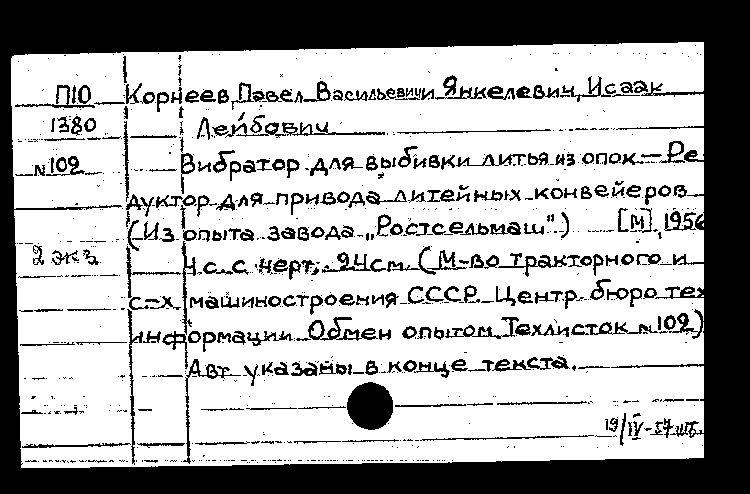 П10 Корнеев, Павел Васильевич и Янкелевич, Исаак
1380 Лейбович
№102 Вибратор для выбивки литья из опок.— Ре
дуктор для привода литейных конвейеров
(Из опыта завода „Ростсельмаш“.) [М], 1956
2 экз. 4 с. с черт.; 24 см. (М-во тракторного и
с-х машиностроения СССР. Центр. бюро тех
информации. Обмен опытом. Техлисток №102)
Авт. указаны в конце текста.
19/IV-57